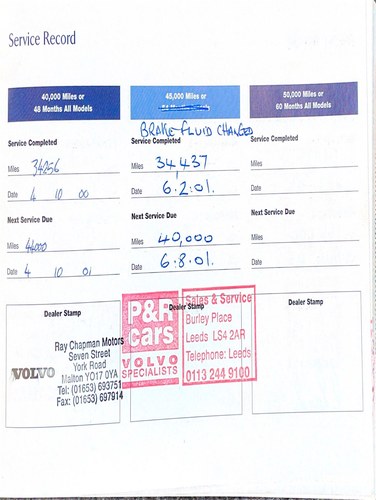 Service Record
40,000 Miles or
48 Months All Models
Service Completed
Miles 34256
Date 4 10 00
Next Service Due
Miles 44000
Date 4 10 01
Dealer Stamp
Ray Chapman Motors
Seven Street
York Road
Malton YO17 0YA
Tel: (01653) 693751
Fax: (01653) 697914
VOLVO
45,000 Miles or
BRAKE FLUID CHANGED
Service Completed
Miles 34,437
Date 6.2.01.
Next Service Due
Miles 40,000
Date 6.8.01.
Dealer Stamp
P&R
cars
VOLVO
SPECIALISTS
Sales & Service
Burley Place
Leeds LS4 2AR
Telephone: Leeds
0113 244 9100
50,000 Miles or
60 Months All Models
Service Completed
Miles
Date
Next Service Due
Miles
Date
Dealer Stamp